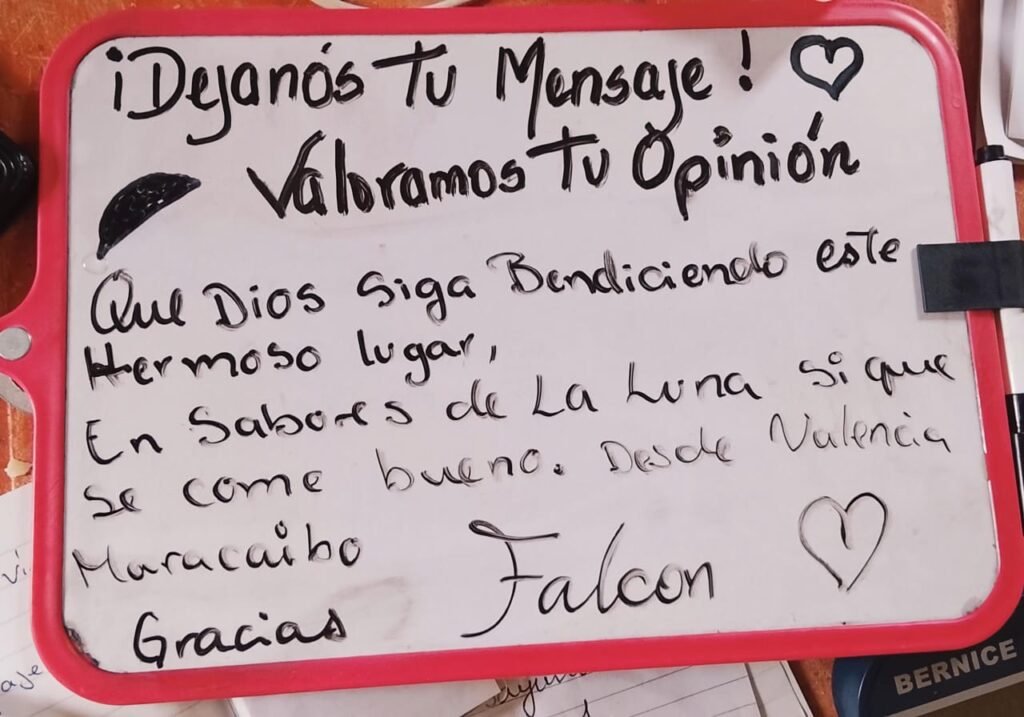 ¡Dejanós Tu Mensaje!
Valoramos Tu Opinión
Que Dios siga Bendiciendo este
Hermoso lugar,
En Sabores de La Luna si que
se come bueno. Desde Valencia
Maracaibo Falcon
Gracias
BERNICE